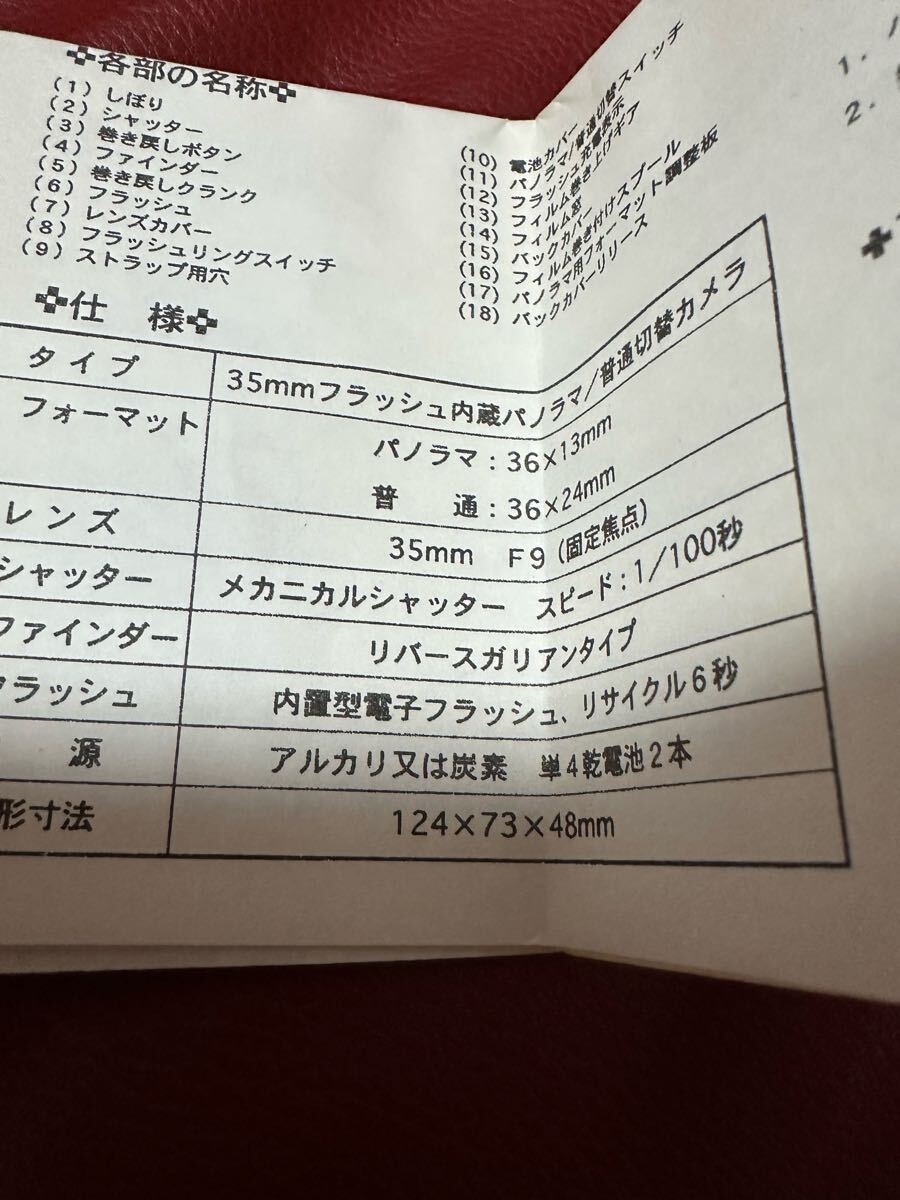 ✤各部の名称✤
(1) しぼり
(2) シャッター
(3) 巻き戻しボタン
(4) ファインダー
(5) 巻き戻しクランク
(6) フラッシュ
(7) レンズカバー
(8) フラッシュリングスイッチ
(9) ストラップ用穴
(10) 電池カバー
(11) パノラマ/普通切替スイッチ
(12) フラッシュ充電表示
(13) フィルム巻き上げギア
(14) フィルム窓
(15) バックカバー
(16) フィルム巻き付けスプール
(17) パノラマ用フォーマット調整板
(18) バックカバーリリース
✤仕 様✤
タイプ 35mmフラッシュ内蔵パノラマ/普通切替カメラ
フォーマット パノラマ：36×13mm
普 通：36×24mm
レンズ 35mm F9（固定焦点）
シャッター メカニカルシャッター スピード：1/100秒
ファインダー リバースガリアンタイプ
フラッシュ 内置型電子フラッシュ、リサイクル6秒
源 アルカリ又は炭素 単4乾電池2本
形寸法 124×73×48mm
1.
2.